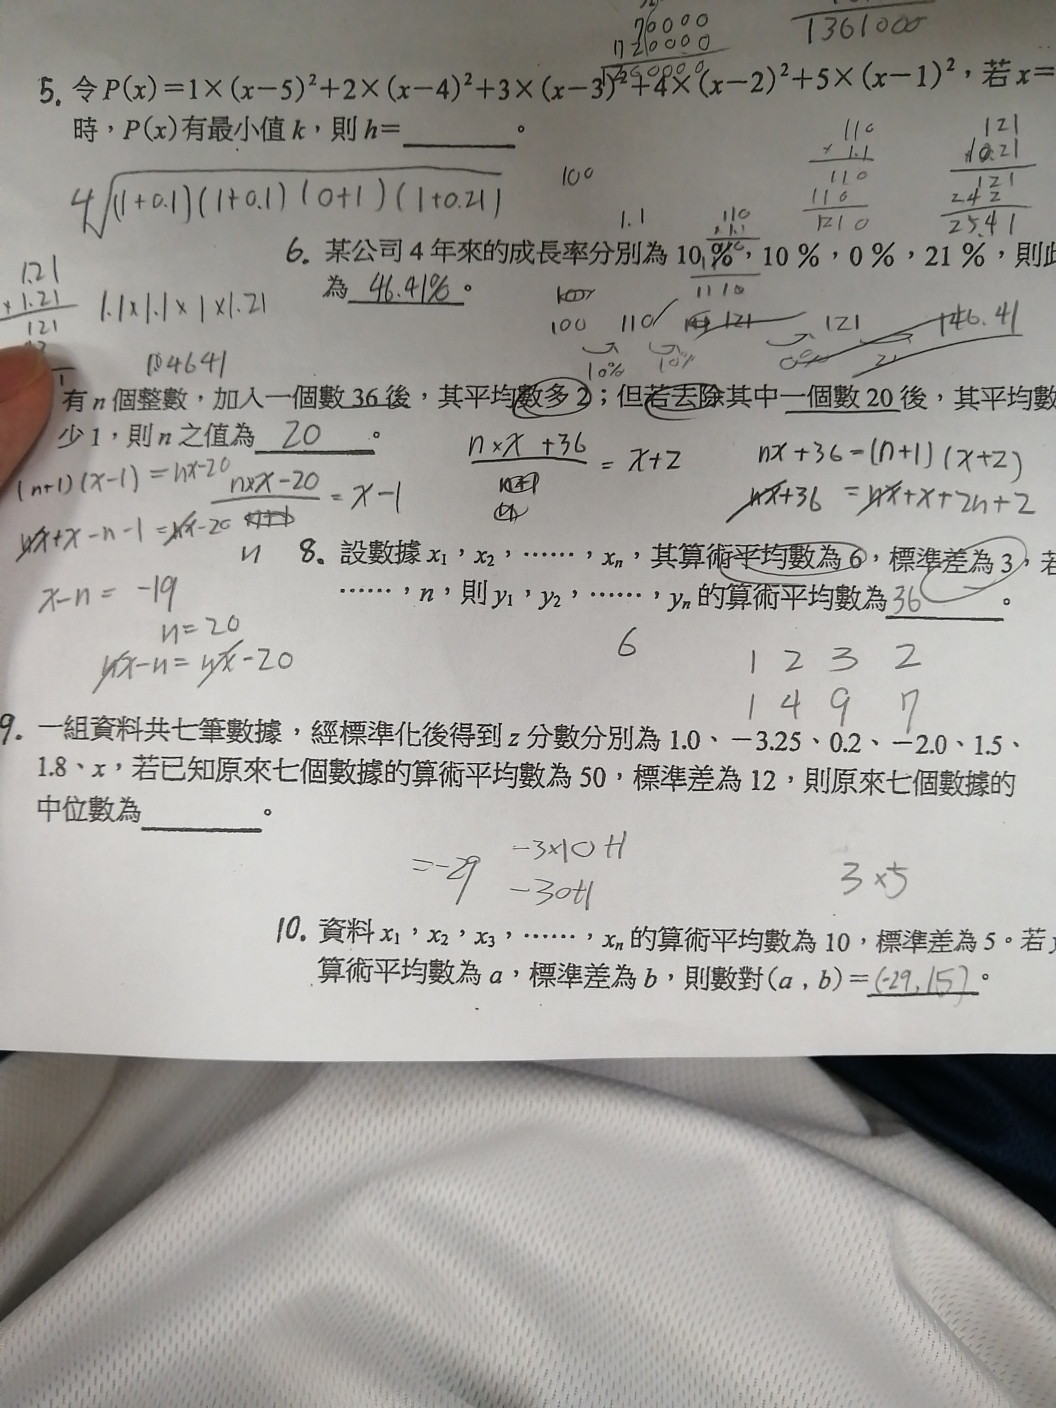 70000
1720000
1361000
5. 令P(x)=1×(x-5)²+2×(x-4)²+3×(x-3)²+4×(x-2)²+5×(x-1)²，若x=
時，P(x)有最小值k，則h=______。
4√(1+0.1)(1+0.1)(0+1)(1+0.21)
100
110
× 1.1
110
110
1210
121
×0.21
121
242
25.41
1.1
110
6. 某公司4年來的成長率分別為10%，10%，0%，21%，則此
為 46.41% 。
1.21
× 1.21
121
1.1×1.1×1×1.21
1110
100 110 121 121 146.41
10% 10% 0% 21
4641
有n個整數，加入一個數36後，其平均數多2；但若去除其中一個數20後，其平均數
少1，則n之值為 20 。
n×x+36 = x+2
nx+36=(n+1)(x+2)
(n+1)(x-1)=nx-20
n×x-20 = x-1
n
nx+36 = nx+x+2n+2
nx+x-n-1=nx-20
8. 設數據x₁，x₂，……，xₙ，其算術平均數為6，標準差為3，若
……，n，則y₁，y₂，……，yₙ的算術平均數為 36 。
x-n= -19
n=20
nx-n=nx-20
6
1 2 3 2
1 4 9 7
9. 一組資料共七筆數據，經標準化後得到z分數分別為1.0、-3.25、0.2、-2.0、1.5、
1.8、x，若已知原來七個數據的算術平均數為50，標準差為12，則原來七個數據的
中位數為______。
-3×10+1
=-29
-30+1
3×5
10. 資料x₁，x₂，x₃，……，xₙ的算術平均數為10，標準差為5。若y
算術平均數為a，標準差為b，則數對(a，b)= (-29,15) 。